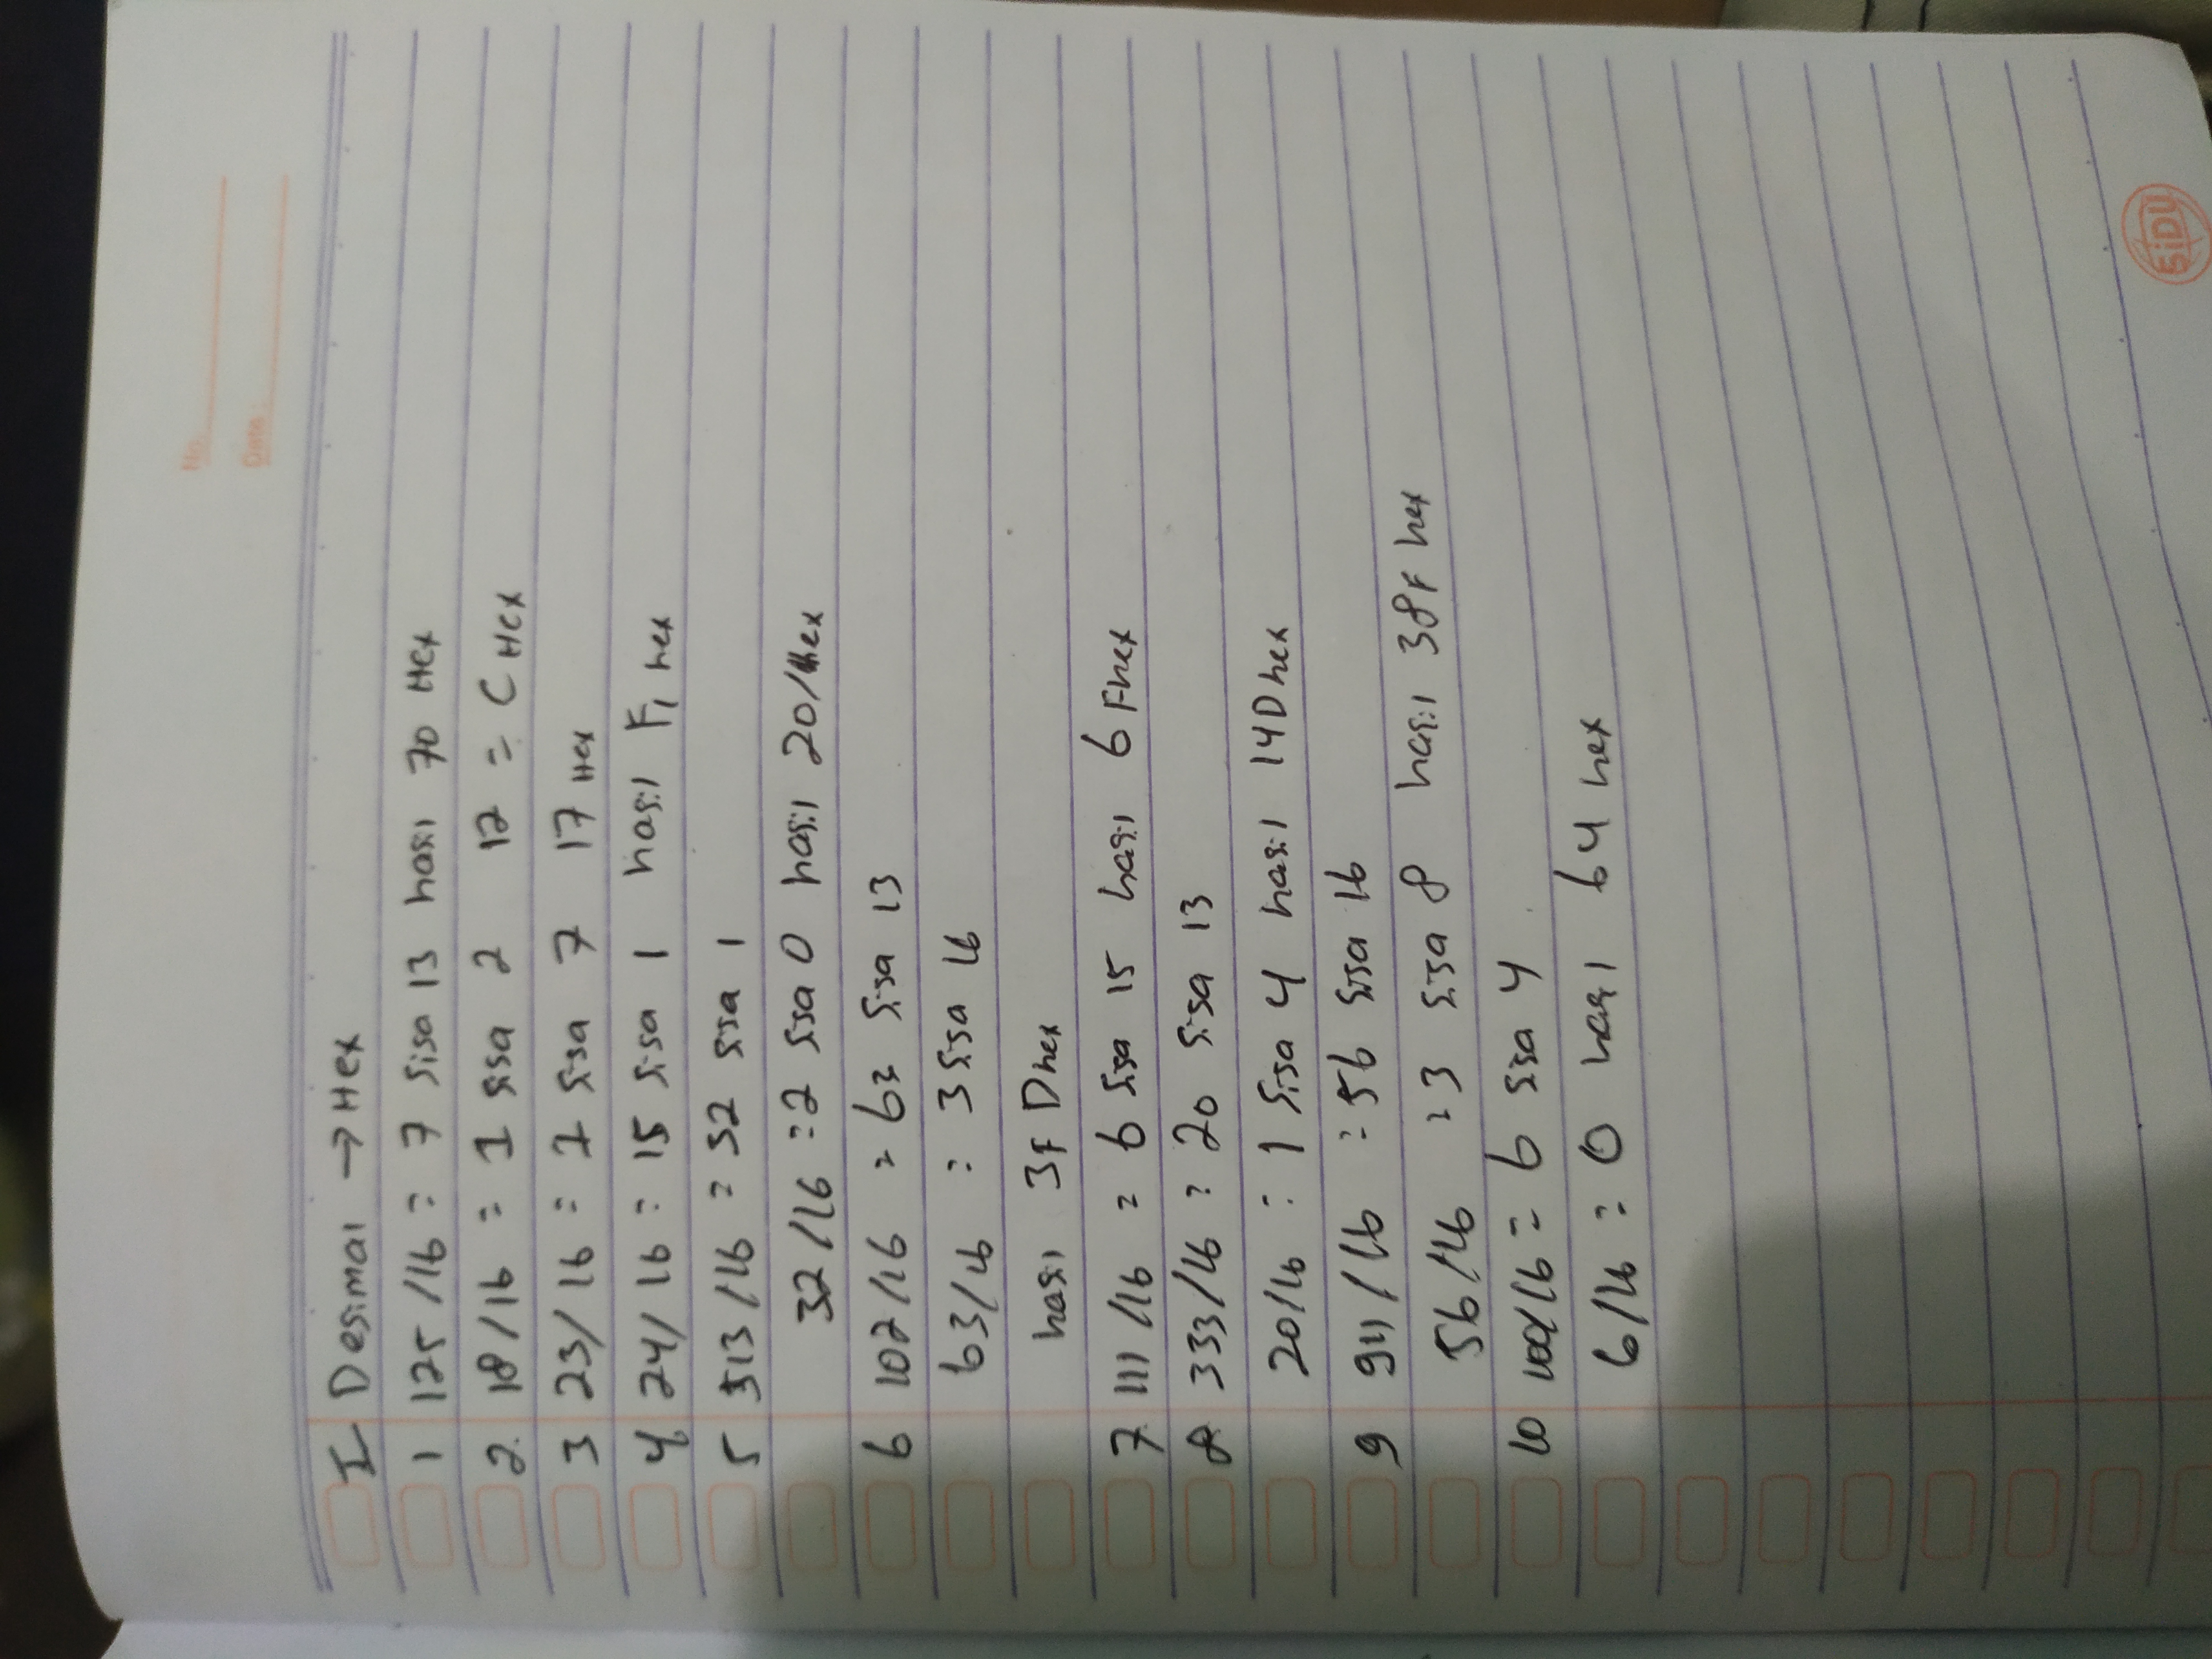 No.
Date :
I Desimal → Hex
1 125 /16 = 7 sisa 13 hasil 70 Hex
2. 18/16 = 1 sisa 2 12 = C Hex
3 23/ 16 = 1 sisa 7 17 Hex
4 24/ 16 = 15 sisa 1 hasil F1 hex
5 513 /16 = 32 sisa 1
32 /16 = 2 sisa 0 hasil 201 hex
6 102/16 = 63 sisa 13
63/16 = 3 sisa 16
hasil 3F D hex
7 111 /16 = 6 sisa 15 hasil 6 F hex
8 333/16 = 20 sisa 13
20/16 = 1 sisa 4 hasil 14D hex
9 911/16 = 56 sisa 16
56/16 = 3 sisa 8 hasil 38F hex
10 100/16 = 6 sisa 4
6/16 = 0 hasil 64 hex
SiDU